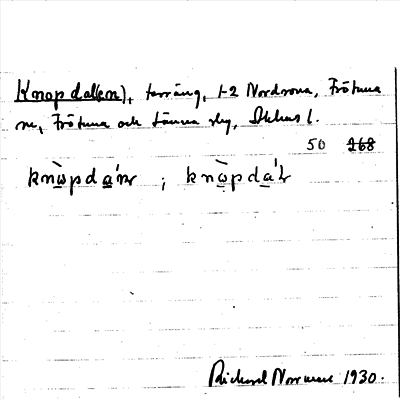 Knopdal(en), torräng, 1-2 Nordrona, Frötuna
sn, Frötuna och Länna slg, Sthlms l.
50 268
knòpdan ; knòpdal
Rickard Norrman 1930.